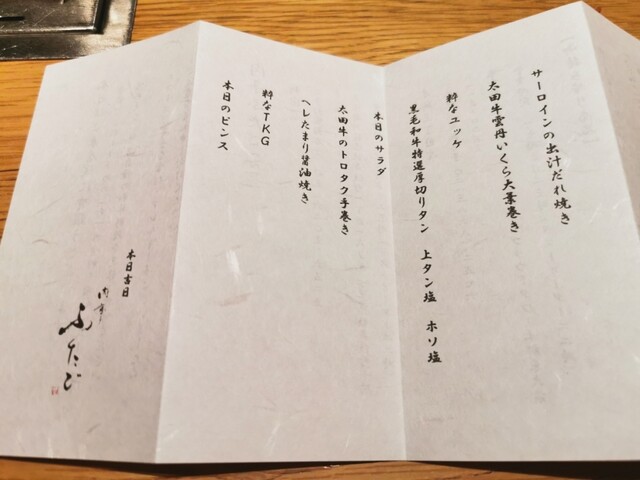 サーロインの出汁だれ焼き
太田牛雲丹いくら大葉巻き
粋なユッケ
黒毛和牛特選厚切りタン 上タン塩 ホソ塩
本日のサラダ
太田牛のトロタク手巻き
ヘレたまり醤油焼き
粋なTKG
本日のビンス
本日吉日
ふたご